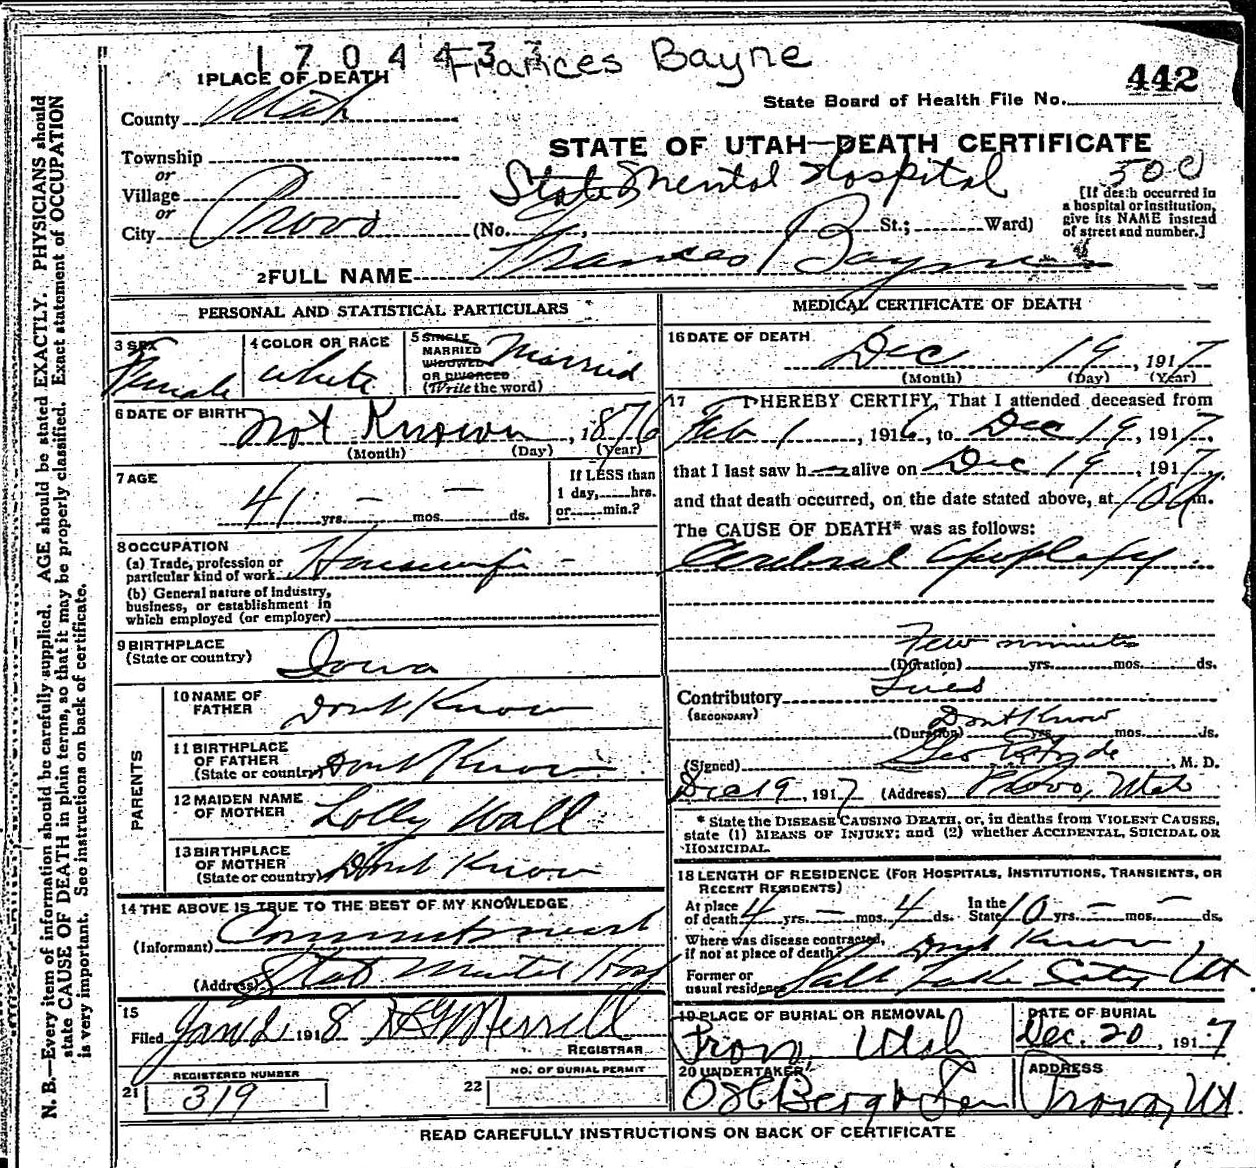 1704433 Frances Bayne
442
1 PLACE OF DEATH
State Board of Health File No.
County Utah
STATE OF UTAH—DEATH CERTIFICATE
Township
or
Village
or
City Provo
State Mental Hospital
300
(No. St.; Ward)
[If death occurred in
a hospital or institution,
give its NAME instead
of street and number.]
2 FULL NAME Frances Bayne
PERSONAL AND STATISTICAL PARTICULARS
3 SEX
Female
4 COLOR OR RACE
White
5 SINGLE
MARRIED
WIDOWED
OR DIVORCED
(Write the word)
Married
6 DATE OF BIRTH
Not Known, 1876
(Month) (Day) (Year)
7 AGE
41 yrs. — mos. — ds.
If LESS than
1 day, hrs.
or min.?
8 OCCUPATION
(a) Trade, profession or
particular kind of work Housewife
(b) General nature of industry,
business, or establishment in
which employed (or employer)
9 BIRTHPLACE
(State or country) Iowa
PARENTS
10 NAME OF
FATHER Dont Know
11 BIRTHPLACE
OF FATHER
(State or country) Dont Know
12 MAIDEN NAME
OF MOTHER Lolly Wall
13 BIRTHPLACE
OF MOTHER
(State or country) Dont Know
14 THE ABOVE IS TRUE TO THE BEST OF MY KNOWLEDGE
(Informant) Commitment
(Address) State Mental Hosp
15
Filed Jan 2 1918 Merrell
REGISTRAR
REGISTERED NUMBER
21 319
NO. OF BURIAL PERMIT
22
MEDICAL CERTIFICATE OF DEATH
16 DATE OF DEATH
Dec 19, 1917
(Month) (Day) (Year)
17 I HEREBY CERTIFY, That I attended deceased from
Feb 1, 1916, to Dec 19, 1917,
that I last saw h alive on Dec 19, 1917,
and that death occurred, on the date stated above, at m.
The CAUSE OF DEATH* was as follows:
Cerebral Apoplexy
Few minutes
(Duration) yrs. mos. ds.
Contributory Lues
(SECONDARY)
Dont Know
(Duration) yrs. mos. ds.
(Signed) Geo Hyde, M. D.
Dec 19, 1917 (Address) Provo, Utah
* State the DISEASE CAUSING DEATH, or, in deaths from VIOLENT CAUSES,
state (1) MEANS OF INJURY; and (2) whether ACCIDENTAL, SUICIDAL OR
HOMICIDAL.
18 LENGTH OF RESIDENCE (FOR HOSPITALS, INSTITUTIONS, TRANSIENTS, OR
RECENT RESIDENTS)
At place
of death 4 yrs. — mos. 4 ds. In the
State 10 yrs. — mos. — ds.
Where was disease contracted,
if not at place of death? Dont Know
Former or
usual residence Salt Lake City Ut
19 PLACE OF BURIAL OR REMOVAL
Provo, Utah
DATE OF BURIAL
Dec. 20, 1917
20 UNDERTAKER
Berg & Son
ADDRESS
Provo, Ut.
READ CAREFULLY INSTRUCTIONS ON BACK OF CERTIFICATE
N. B.—Every item of information should be carefully supplied. AGE should be stated EXACTLY. PHYSICIANS should
state CAUSE OF DEATH in plain terms, so that it may be properly classified. Exact statement of OCCUPATION
is very important. See instructions on back of certificate.